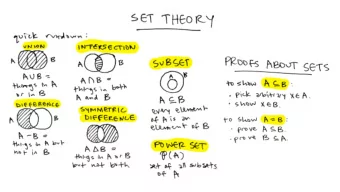 SET THEORY
quick rundown:
UNION
A B
A ∪ B =
things in A
or in B
INTERSECTION
A B
A ∩ B =
things in both
A and B
DIFFERENCE
A B
A − B =
things in A but
not in B
SYMMETRIC
DIFFERENCE
A B
A Δ B =
things in A or B
but not both
SUBSET
B
A
A ⊆ B
every element
of A is an
element of B
POWER SET
P(A)
set of all subsets
of A
PROOFS ABOUT SETS
to show A ⊆ B:
• pick arbitrary x ∈ A.
• show x ∈ B.
to show A = B:
• prove A ⊆ B.
• prove B ⊆ A.